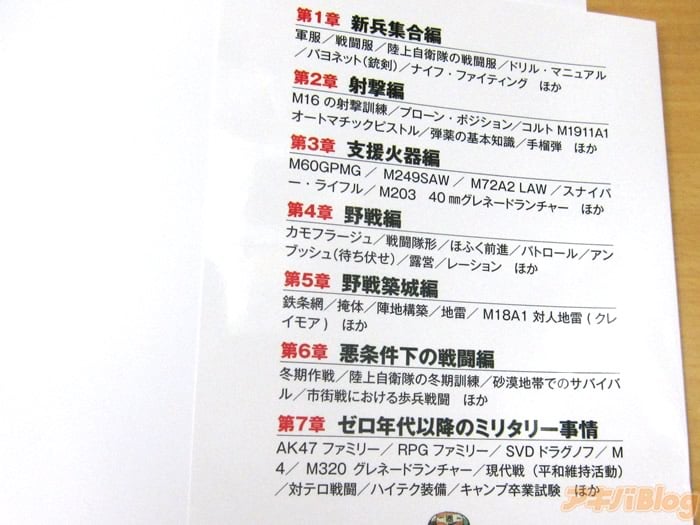 第1章 新兵集合編
軍服／戦闘服／陸上自衛隊の戦闘服／ドリル・マニュアル
／バヨネット(銃剣)／ナイフ・ファイティング ほか
第2章 射撃編
M16の射撃訓練／プローン・ポジション／コルトM1911A1
オートマチックピストル／弾薬の基本知識／手榴弾 ほか
第3章 支援火器編
M60GPMG ／ M249SAW ／ M72A2 LAW ／スナイパ
ー・ライフル／M203 40㎜グレネードランチャー ほか
第4章 野戦編
カモフラージュ／戦闘隊形／ほふく前進／パトロール／アン
ブッシュ(待ち伏せ)／露営／レーション ほか
第5章 野戦築城編
鉄条網／掩体／陣地構築／地雷／ M18A1 対人地雷 ( クレ
イモア ) ほか
第6章 悪条件下の戦闘編
冬期作戦／陸上自衛隊の冬期訓練／砂漠地帯でのサバイバ
ル／市街戦における歩兵戦闘 ほか
第7章 ゼロ年代以降のミリタリー事情
AK47 ファミリー／ RPG ファミリー／ SVD ドラグノフ／ M
4／ M320 グレネードランチャー／現代戦（平和維持活動）
／対テロ戦闘／ハイテク装備／キャンプ卒業試験 ほか
アキバBlog